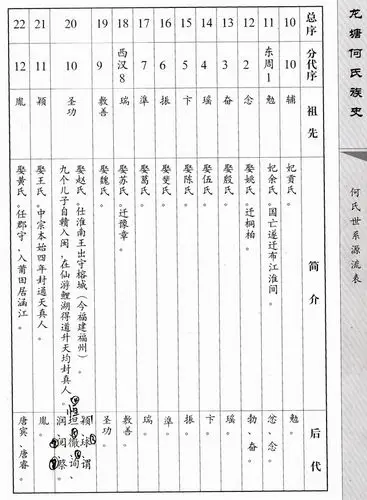 龙塘何氏族史
何氏世系源流表
总序 分代序 祖先 简介 后代
10 10 辅 妃贡氏。 勉。
11 东周1 勉 妃余氏。国亡遂迁布江淮间。 忿、念。
12 2 念 娶姚氏。迁桐柏。 勃、奋。
13 3 奋 娶殷氏。 瑶。
14 4 瑶 娶伍氏。 卞。
15 5 卞 娶陈氏。 振。
16 6 振 娶斐氏。 準。
17 7 準 娶葛氏。 瑞。
18 西汉8 瑞 娶苏氏。迁豫章。 教善。
19 9 教善 娶魏氏。 圣功。
20 10 圣功 娶赵氏。仕淮南王出守榕城(今福建福州)。
九个儿子自赣入闽,在仙游鲤湖得道升天均封真人。
颖、球、谓
坦、徹、洵、
润、阅、
21 11 颖 娶王氏。中宗本始四年封通天真人。 胤。
22 12 胤 娶黄氏。任郡守,入莆田居涵江。 唐宾、唐睿。